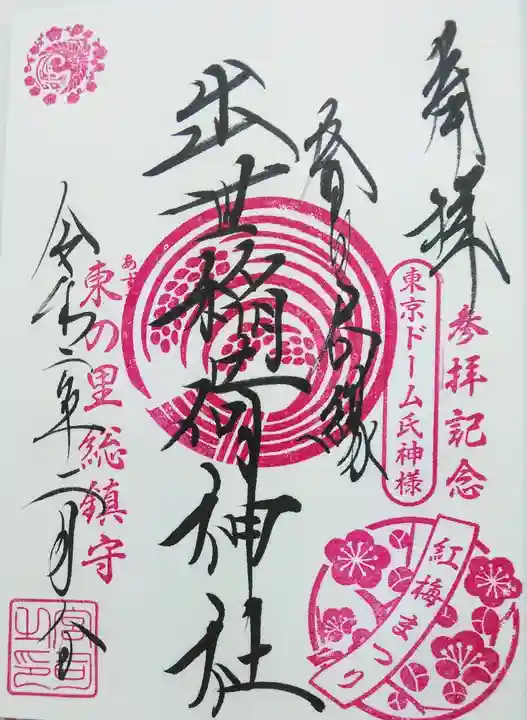 奉拝
参拝記念
東京ドーム氏神様
紅梅まつり
春日局縁
出世稲荷神社
東の里総鎮守
令和二年二月